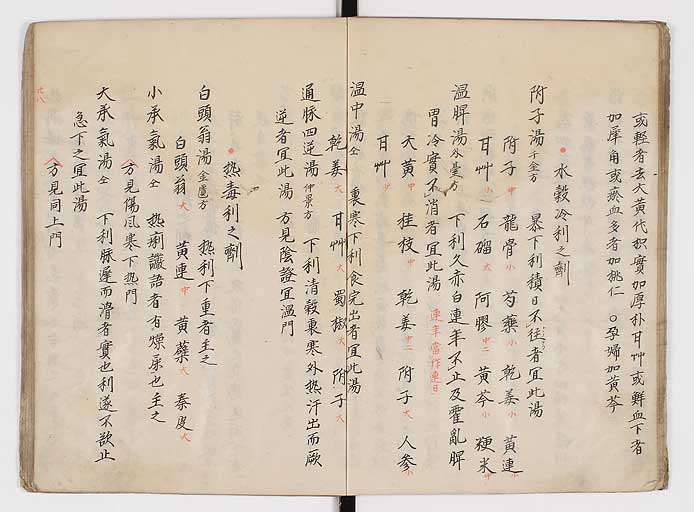 或輕者去大黄代枳實加厚朴甘艸或鮮血下者
加犀角或瘀血多者加桃仁 ○孕婦加黄芩
水穀冷利之劑
附子湯千金方 暴下利積日不住者宜此湯
附子中 龍骨小 芍藥小 乾姜小 黄連小
甘艸小 石榴大 阿膠中二 黄芩小 粳米中
温脾湯 下利久亦白連年不止及霍亂脾
胃冷實不消者宜此湯 連年當作連日
大黄中 桂枝中 乾姜中二 附子大 人參小
甘艸
温中湯仝 裏寒下利食完出者宜此湯
乾姜大 甘艸大 蜀椒大 附子大
通脉四逆湯仲景方 下利清穀裏寒外热汗出而厥
逆者宜此湯 方見陰證宜温門
热毒利之劑
白頭翁湯金匱方 热利下重者主之
白頭翁大 黄連中 黄蘗大 秦皮大
小承氣湯仝 热痢讝語者有燥屎也主之
方見傷風寒下热門
大承氣湯仝 下利脉遲而滑者實也利遂不欲止
急下之宜此湯
方見同上門